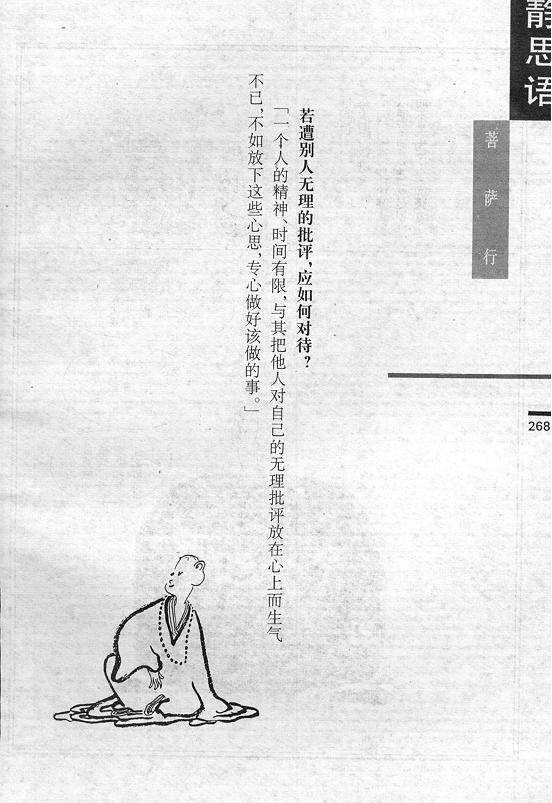 静思语
菩萨行
268
若遭别人无理的批评，应如何对待？
「一个人的精神、时间有限，与其把他人对自己的无理批评放在心上而生气
不已，不如放下这些心思，专心做好该做的事。」